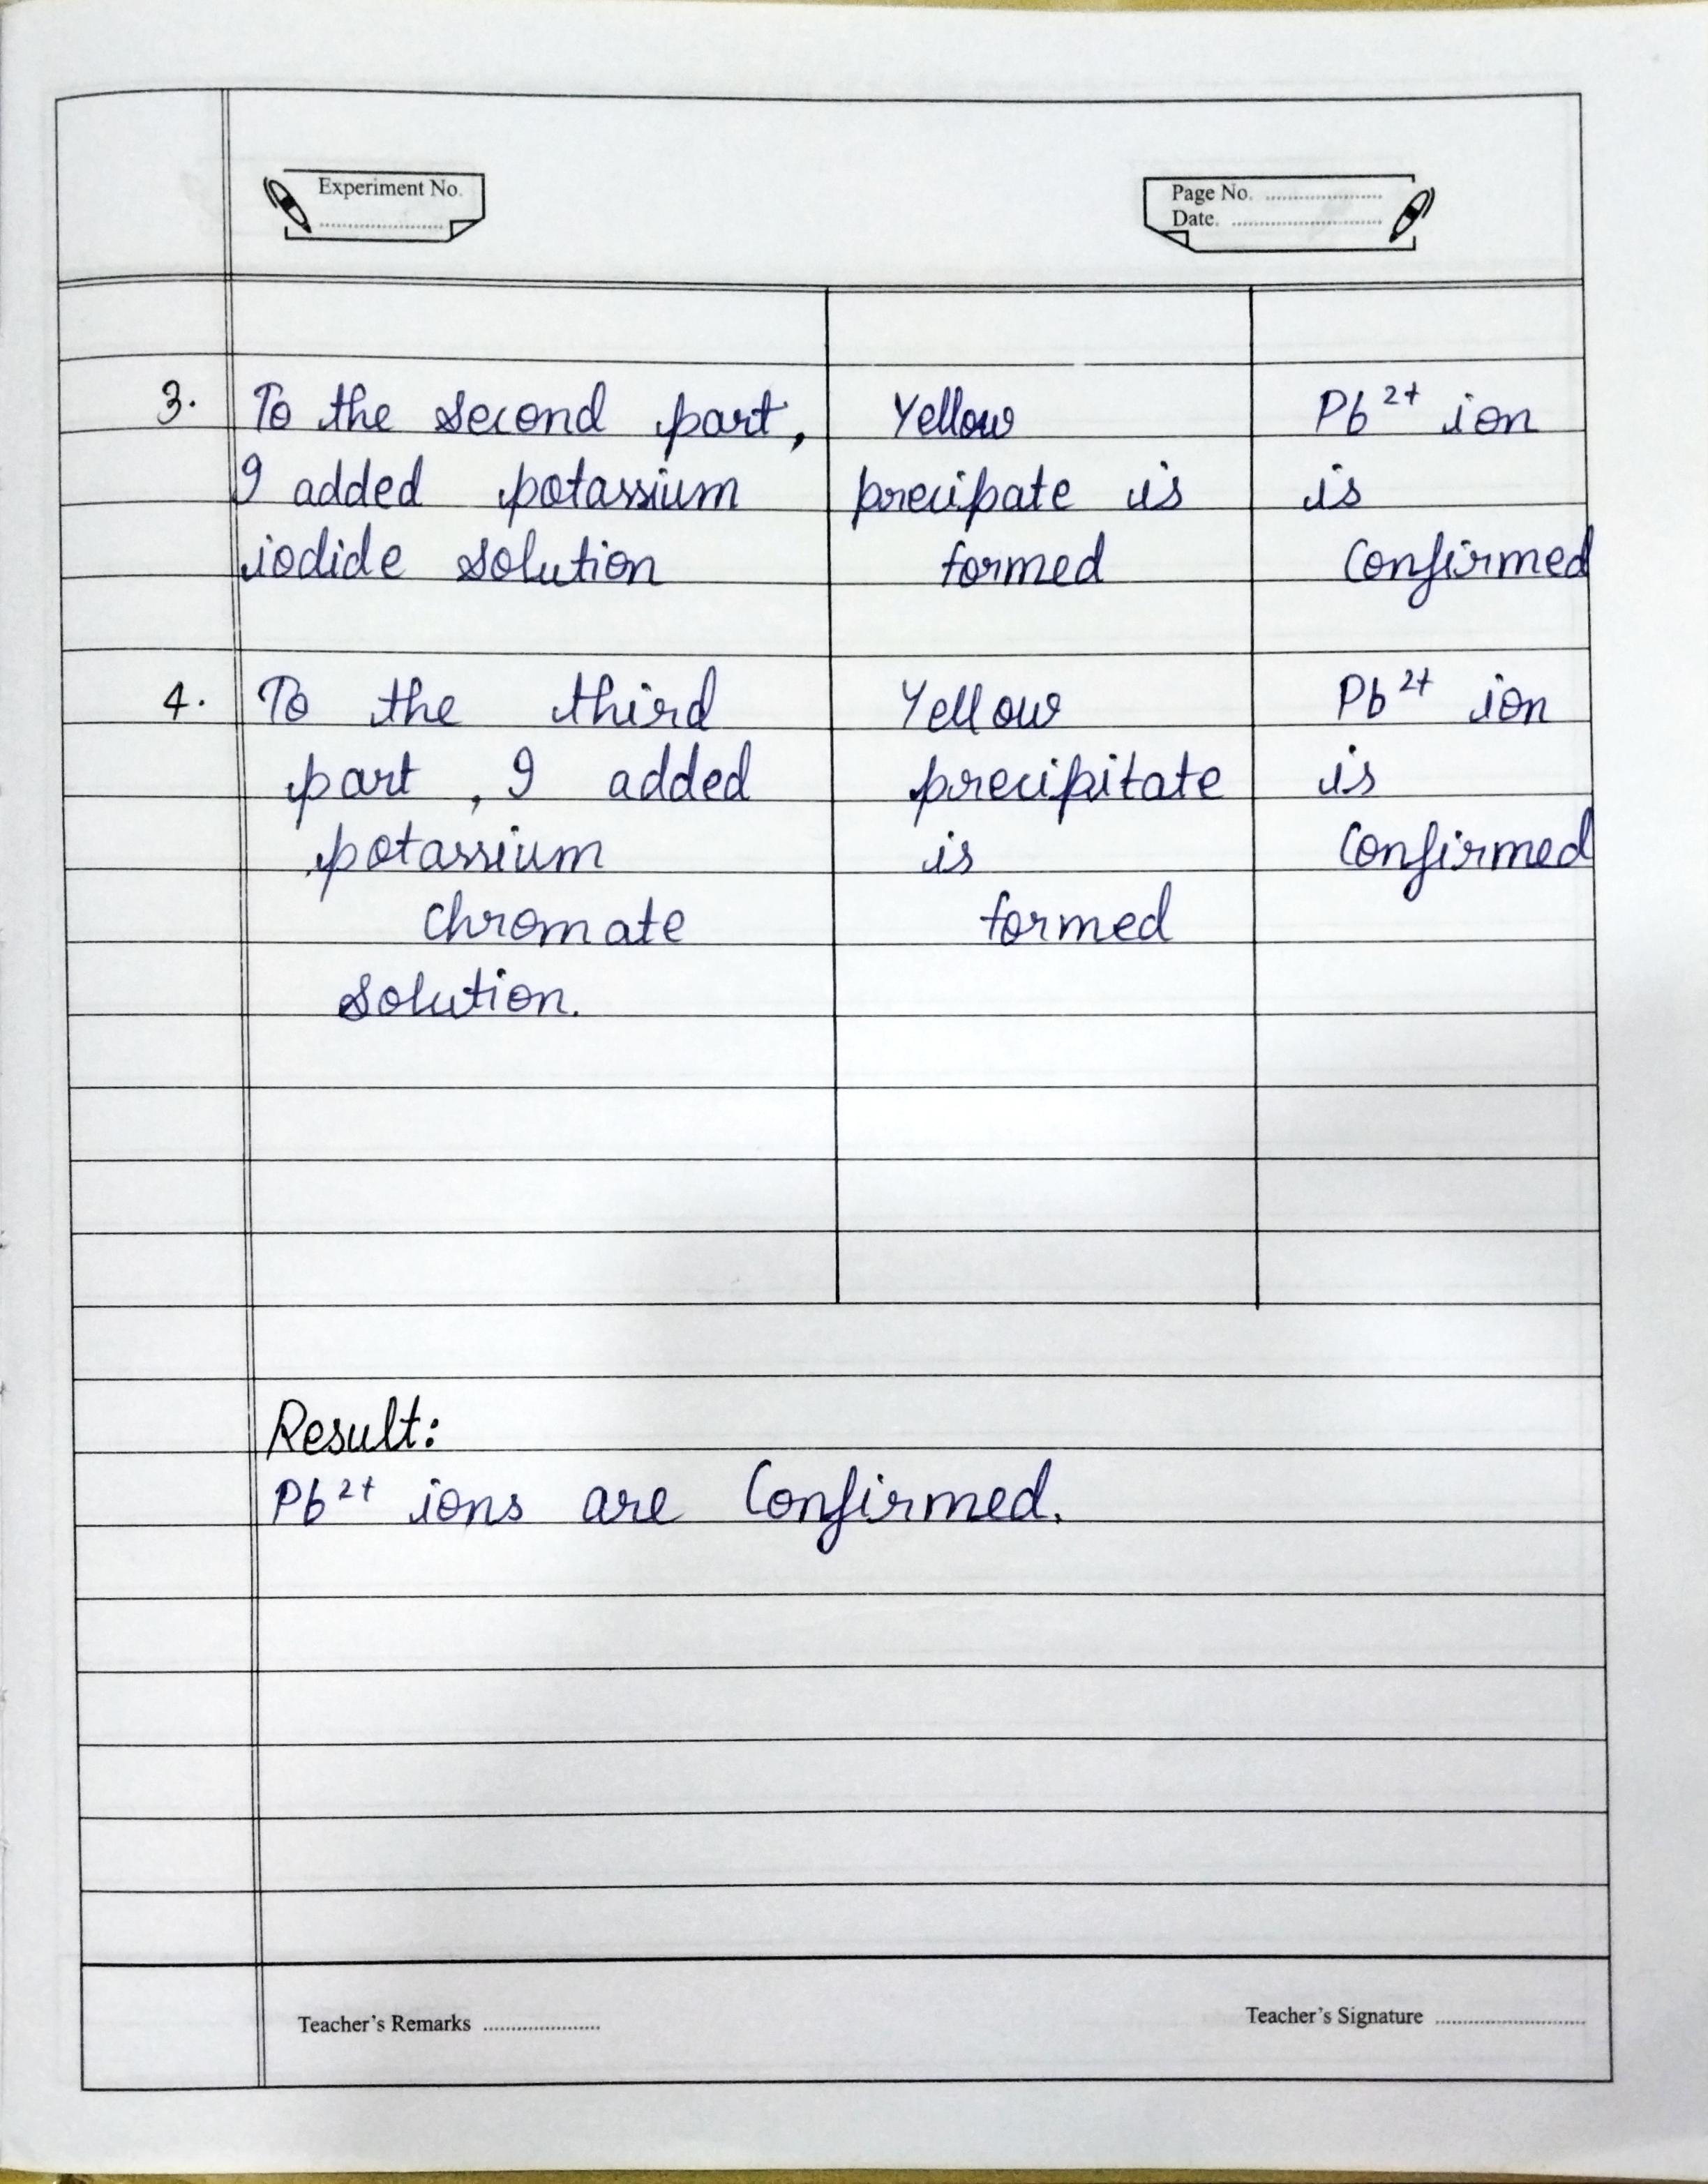 Experiment No.
Page No.
Date.
3. To the second part, Yellow Pb²⁺ ion
I added potassium precipate is is
iodide solution formed Confirmed
4. To the third Yellow Pb²⁺ ion
part, I added precipitate is
potassium is Confirmed
chromate formed
solution.
Result:
Pb²⁺ ions are Confirmed.
Teacher's Remarks
Teacher's Signature